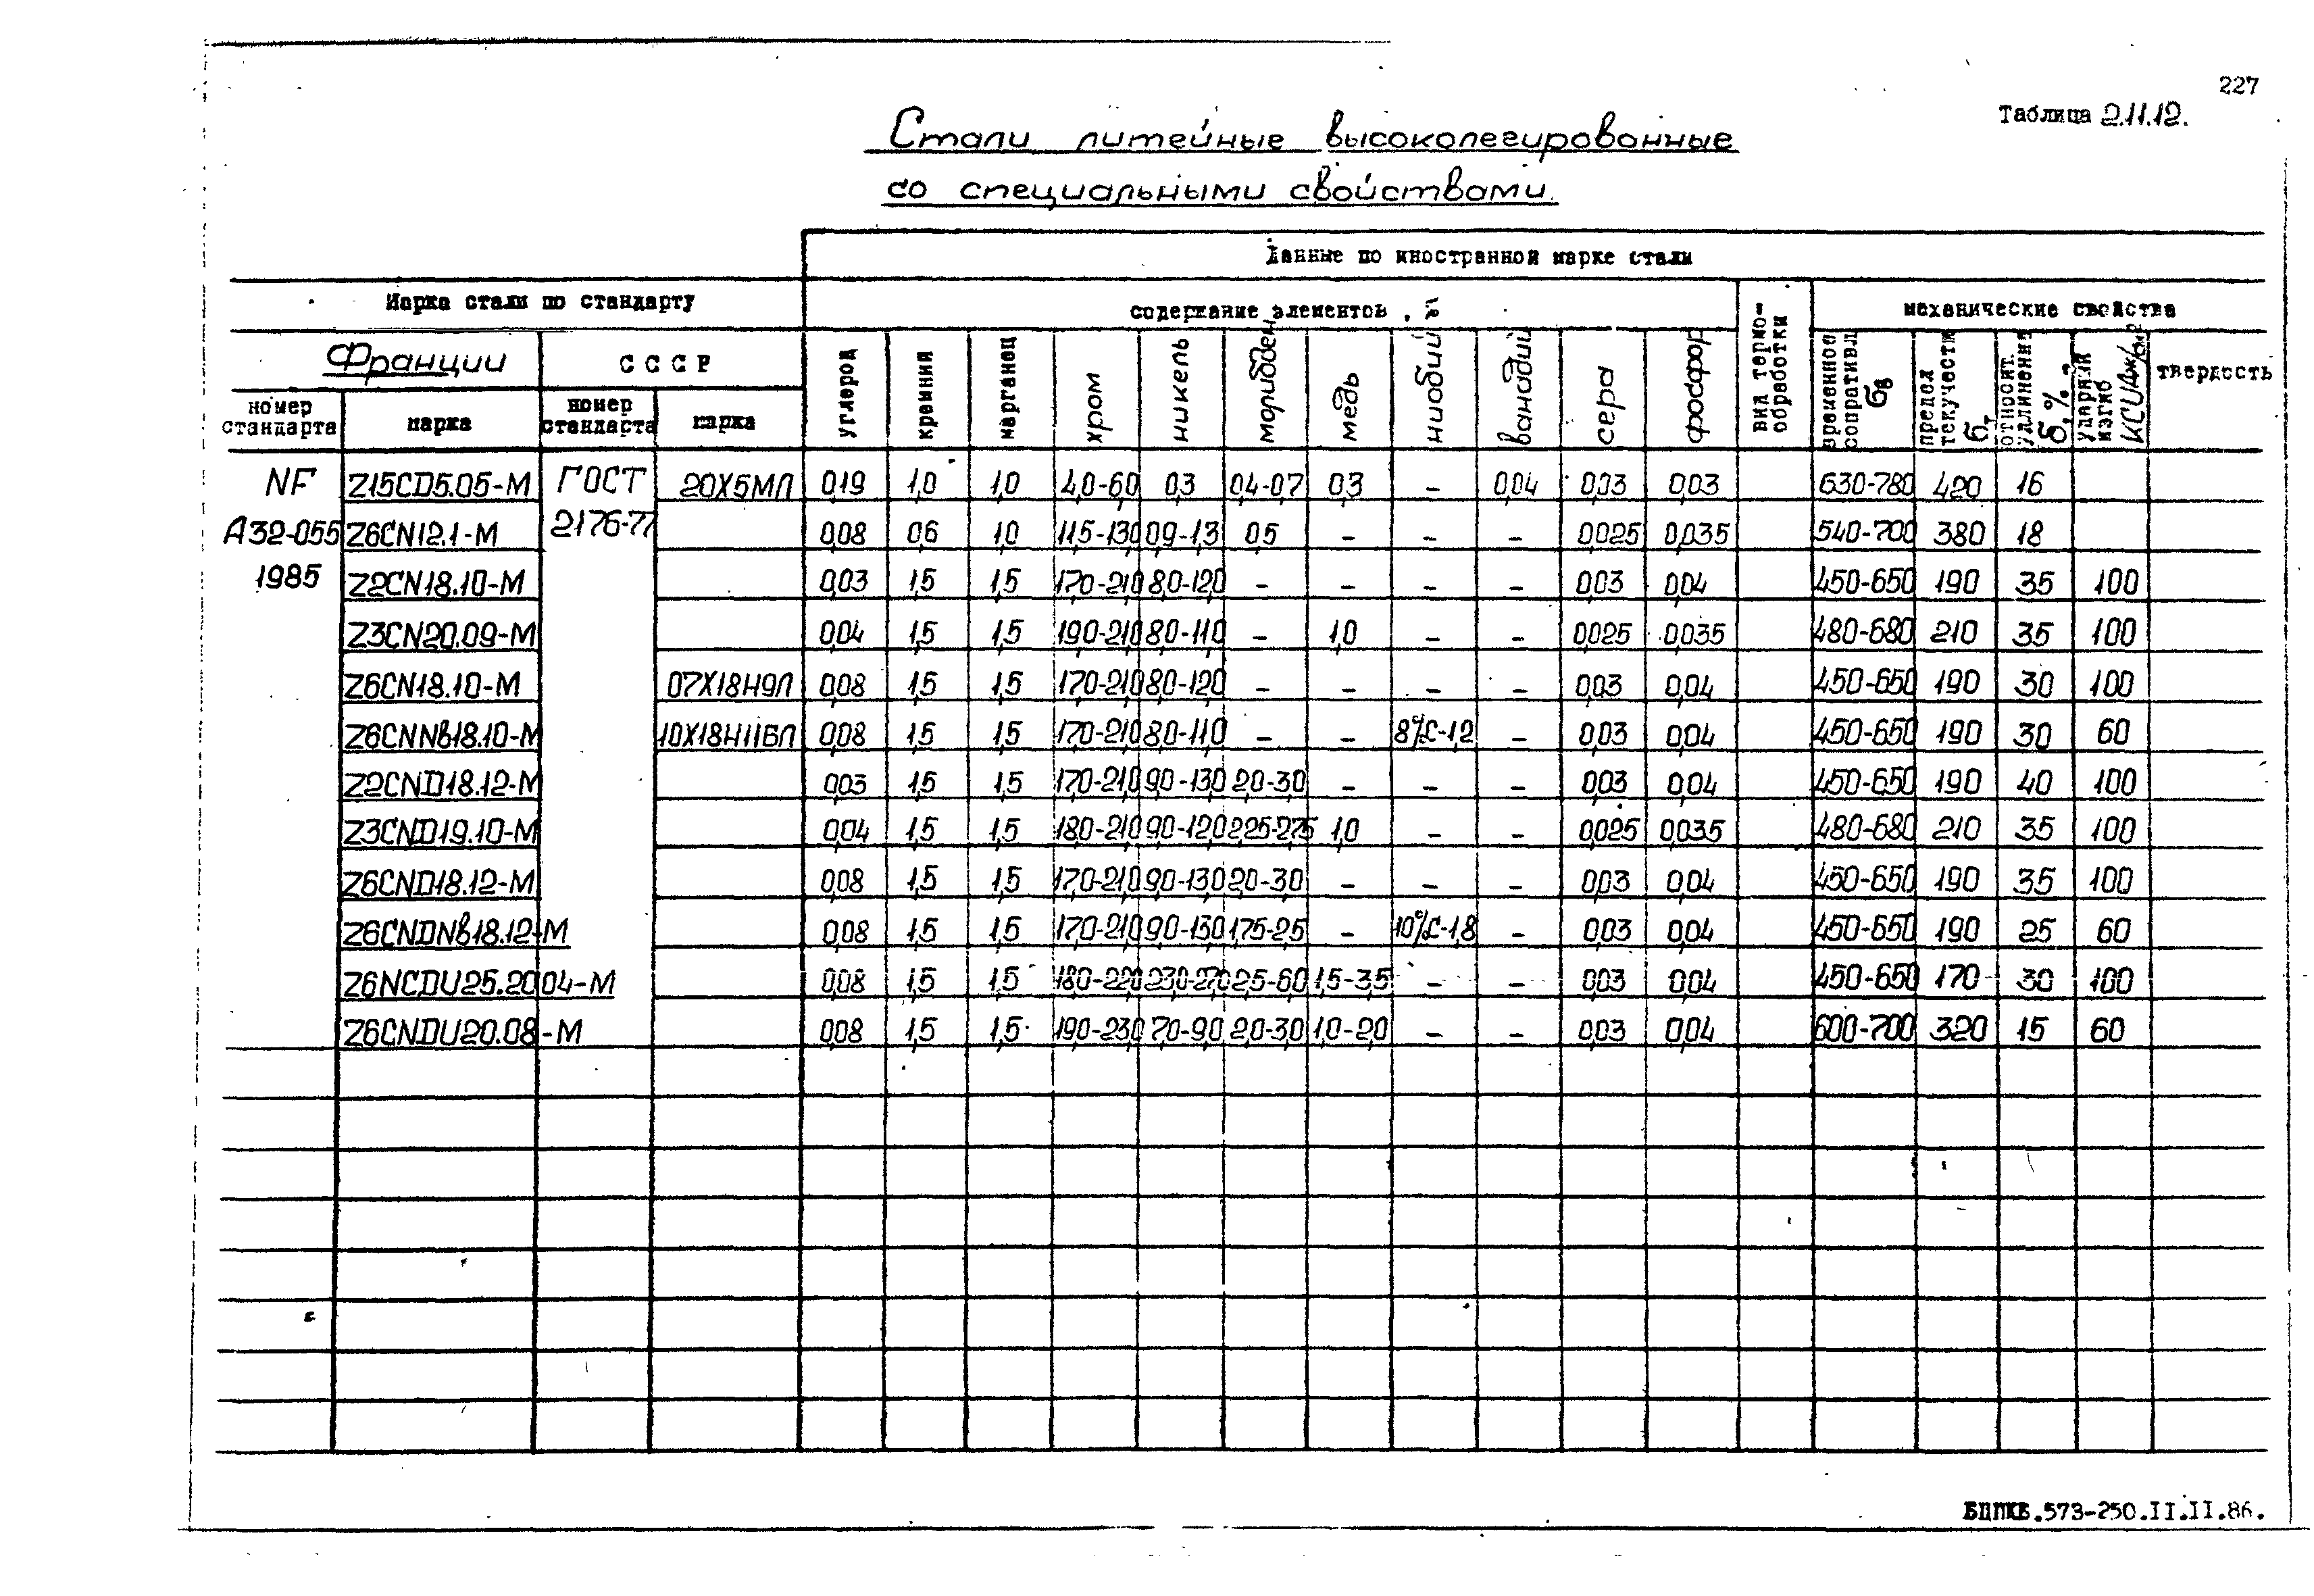 227
Таблица 2.11.12.
Стали литейные высоколегированные
со специальными свойствами.
Данные по иностранной марке стали
Марка стали по стандарту
содержание элементов, %
вид термо-
обработки
механические свойства
Франции
СССР
углерод
кремний
марганец
хром
никель
молибден
медь
ниобий
ванадий
сера
фосфор
временное сопротивл. σв
предел текучести σт
относит. удлинение δ, %
ударный изгиб KCU
твердость
номер стандарта
марка
номер стандарта
марка
NF Z15CD5.05-М ГОСТ 20Х5МЛ 0,19 1,0 1,0 4,0-6,0 0,3 0,4-0,7 0,3 - 0,04 0,03 0,03 630-780 420 16
А32-055 Z6CN12.1-М 2176-77 0,08 0,6 1,0 11,5-13,0 0,9-1,3 0,5 - - - 0,025 0,035 540-700 380 18
1985 Z2CN18.10-М 0,03 1,5 1,5 17,0-21,0 8,0-12,0 - - - - 0,03 0,04 450-650 190 35 100
Z3CN20.09-М 0,04 1,5 1,5 19,0-21,0 8,0-11,0 - 1,0 - - 0,025 0,035 480-680 210 35 100
Z6CN18.10-М 07Х18Н9Л 0,08 1,5 1,5 17,0-21,0 8,0-12,0 - - - - 0,03 0,04 450-650 190 30 100
Z6CNNb18.10-М 10Х18Н11БЛ 0,08 1,5 1,5 17,0-21,0 8,0-11,0 - - 8%С-1,2 - 0,03 0,04 450-650 190 30 60
Z2CND18.12-М 0,03 1,5 1,5 17,0-21,0 9,0-13,0 2,0-3,0 - - - 0,03 0,04 450-650 190 40 100
Z3CND19.10-М 0,04 1,5 1,5 18,0-21,0 9,0-12,0 2,25-2,75 1,0 - - 0,025 0,035 480-680 210 35 100
Z6CND18.12-М 0,08 1,5 1,5 17,0-21,0 9,0-13,0 2,0-3,0 - - - 0,03 0,04 450-650 190 35 100
Z6CNDNb18.12-М 0,08 1,5 1,5 17,0-21,0 9,0-13,0 1,75-2,5 - 10%С-1,8 - 0,03 0,04 450-650 190 25 60
Z6NCDU25.20.04-М 0,08 1,5 1,5 18,0-22,0 23,0-27,0 2,5-6,0 1,5-3,5 - - 0,03 0,04 450-650 170 30 100
Z6CNDU20.08-М 0,08 1,5 1,5 19,0-23,0 7,0-9,0 2,0-3,0 1,0-2,0 - - 0,03 0,04 600-700 320 15 60
БППКБ.573-250.II.II.86.